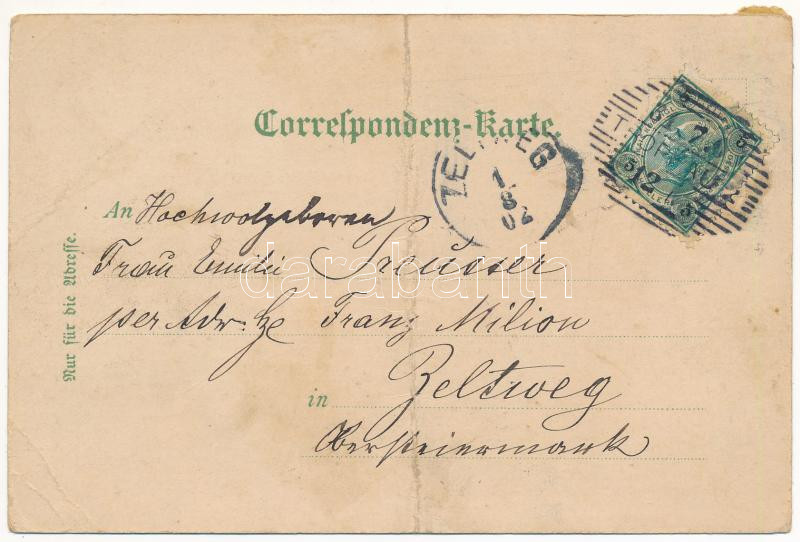 Correspondenz-Karte.
ZELTWEG
1
8
02
An Hochwolgeboren
Frau Emilie Preusser
per Adr. He Franz Milion
in Zeltweg
Obersteiermark
Nur für die Adresse.
darabanth